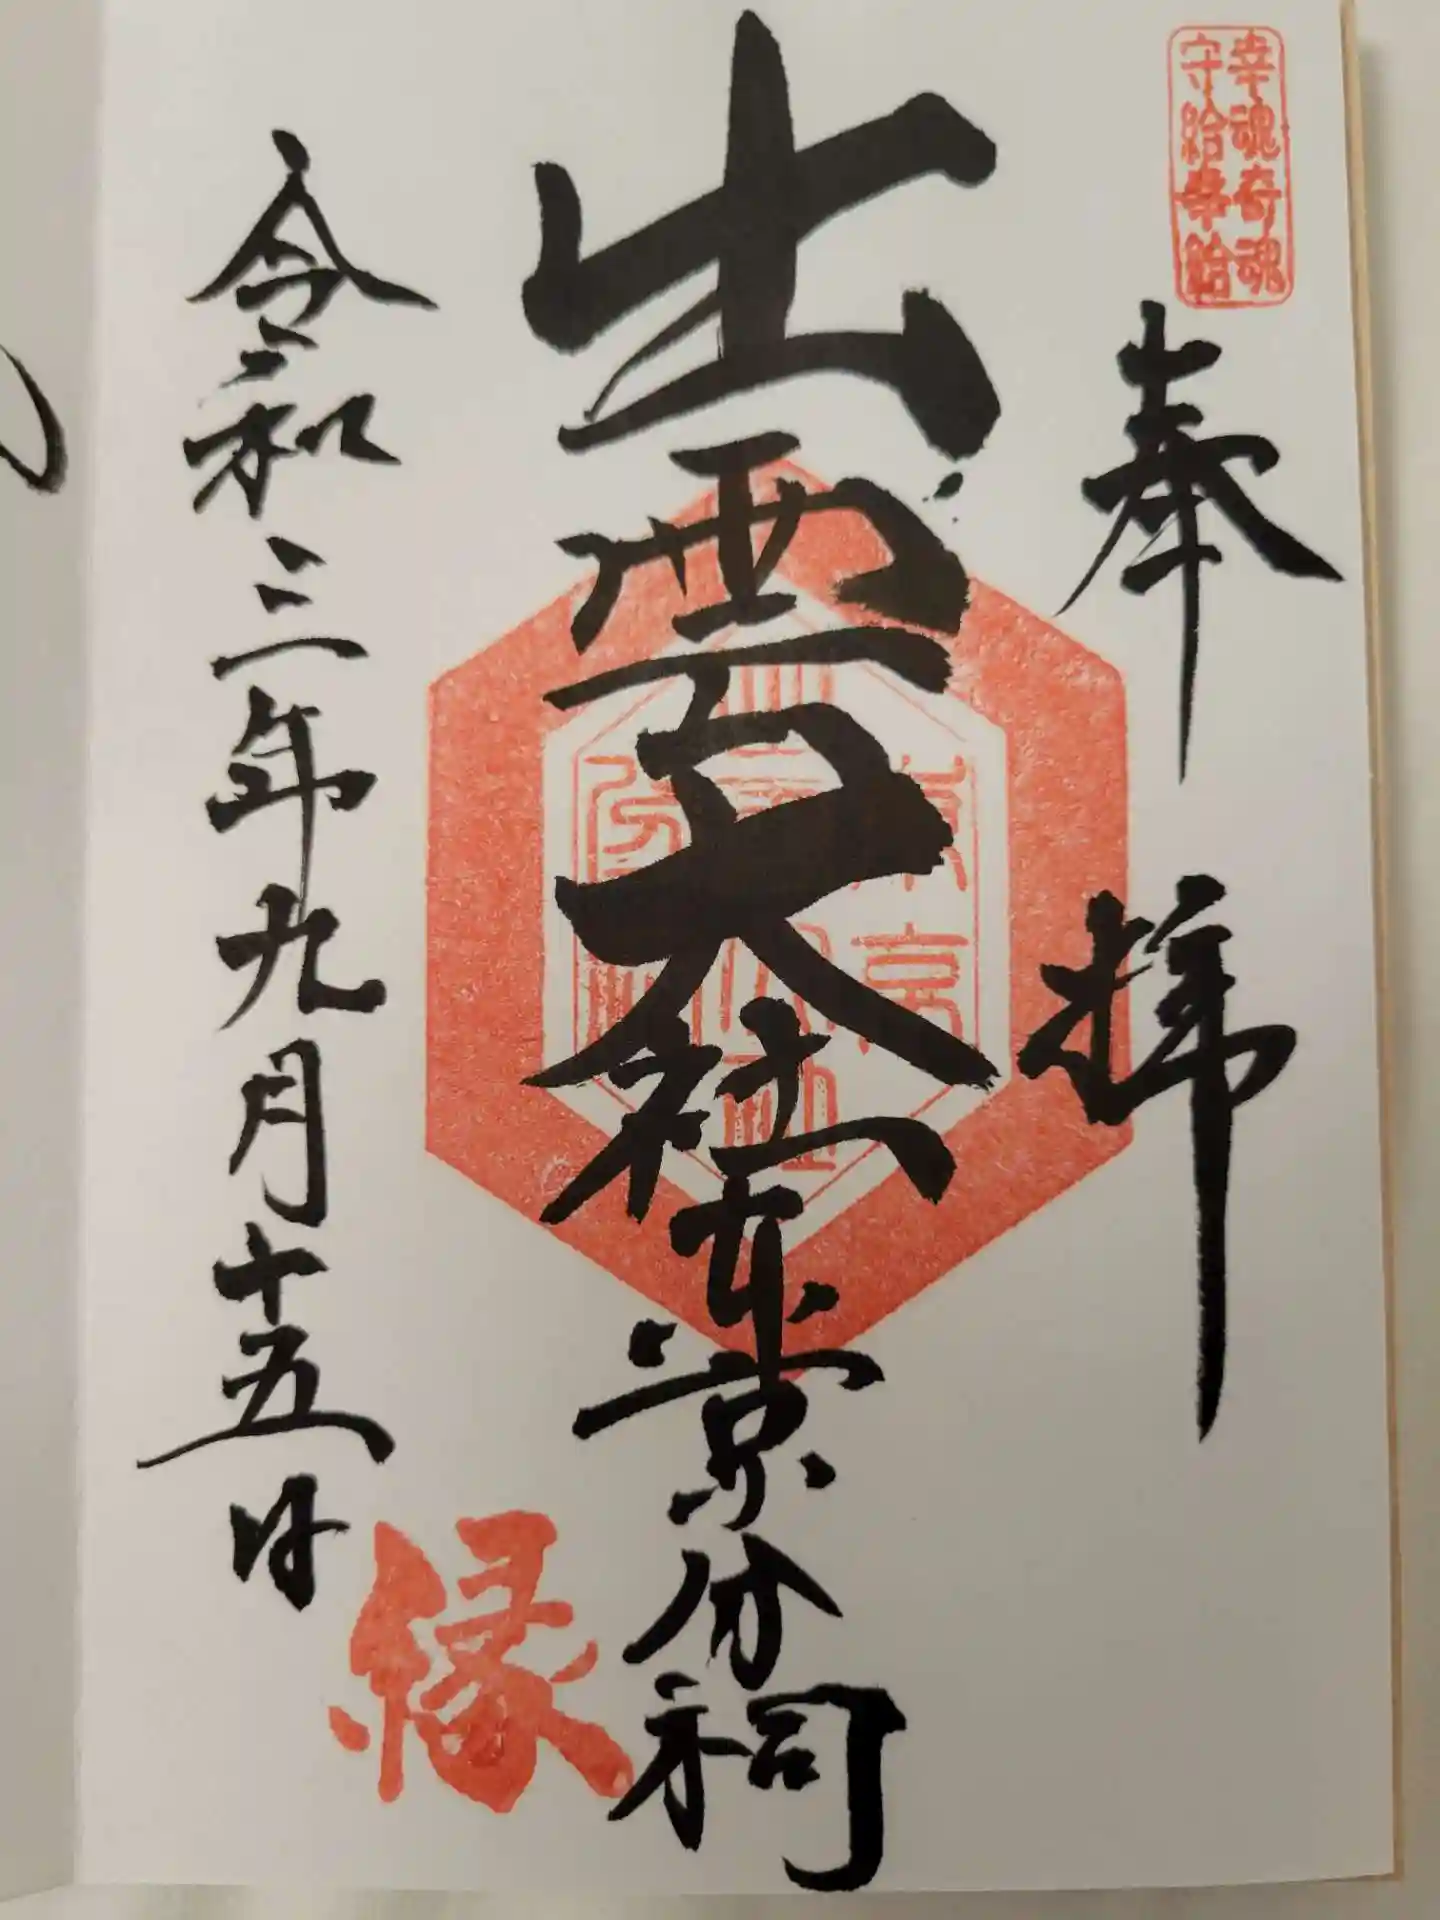 幸魂奇魂
守給幸給
奉拝
出雲大社東京分祠
令和三年九月十五日
縁
東京